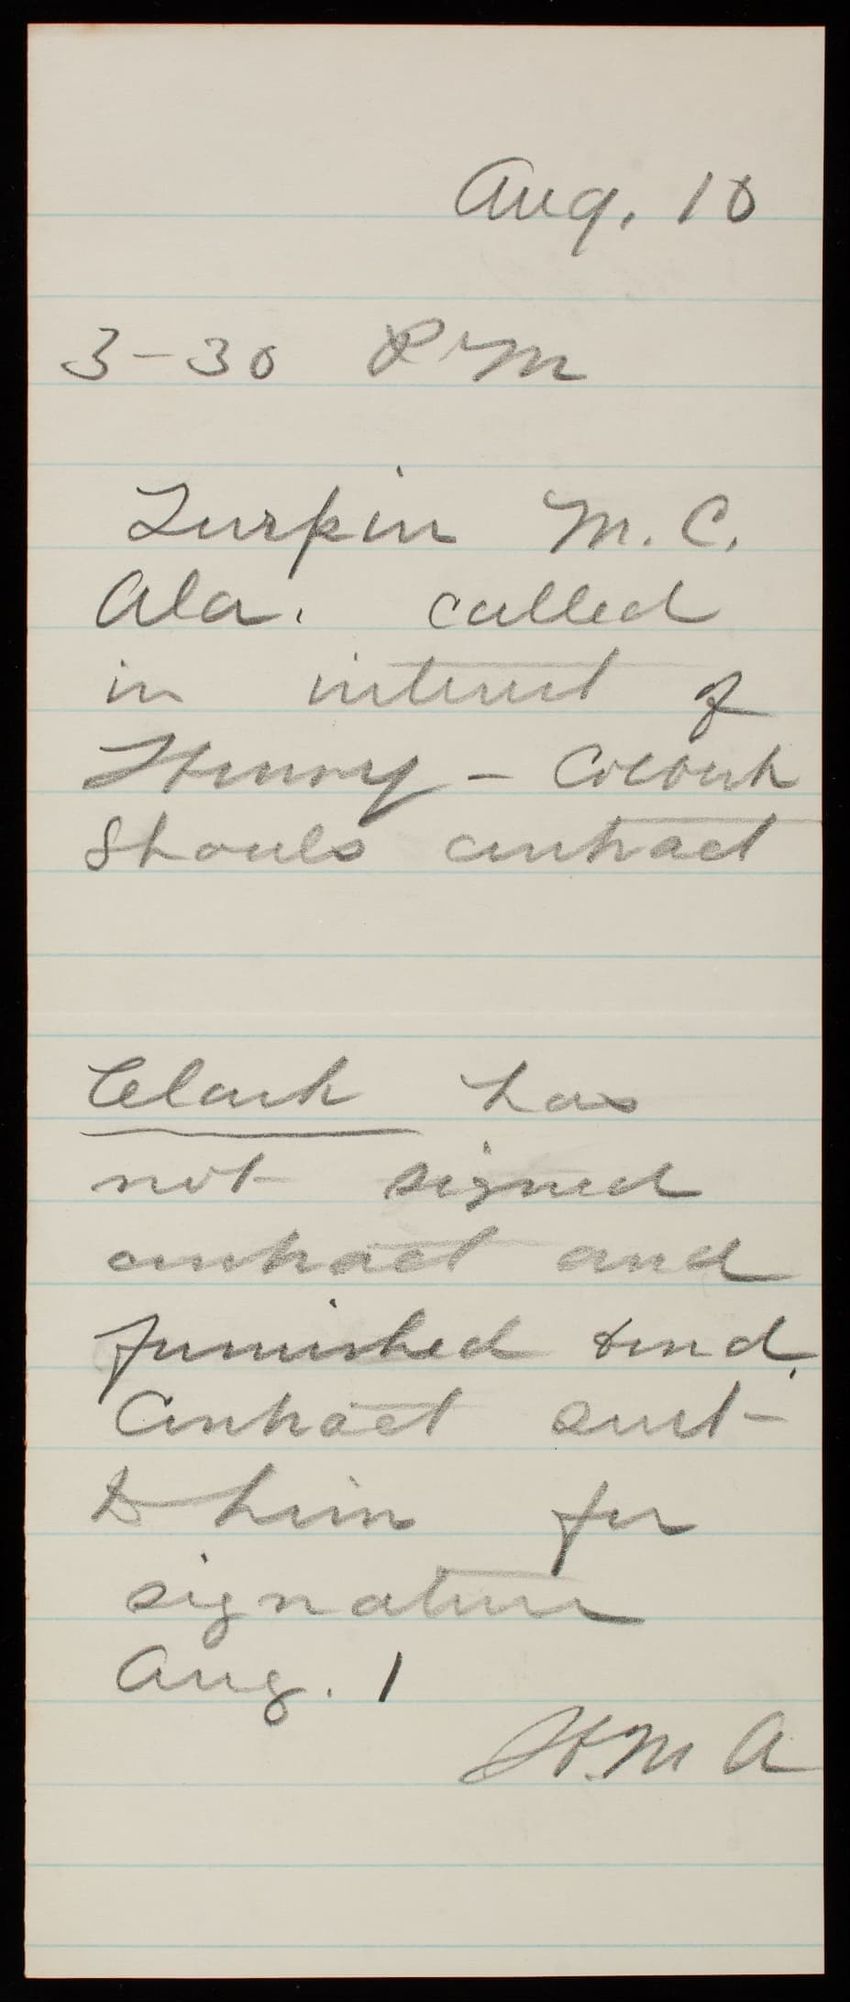 Aug. 10
3-30 PM
Turpin M.C.
Ala. called
in interest of
Henry - Colbert
Shoals contract
Clark has
not signed
contract and
furnished bond.
Contract sent
to him for
signature
Aug. 1
H.M A